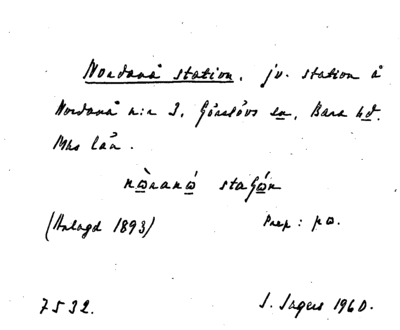 Nordanå station, jv. station å
Nordanå n:r 3, Görslövs sn, Bara hd.
Mhs län.
station
(Anlagd 1893) Prep: på.
7532. S. Sagers 1960.